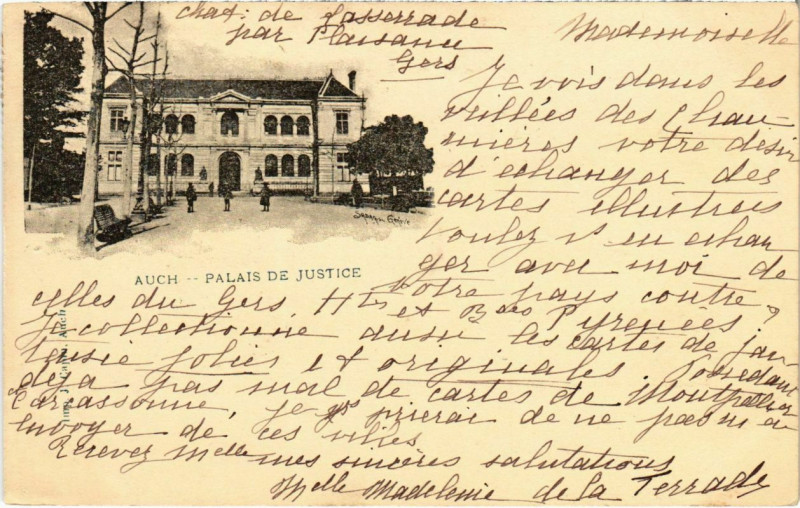 chat. de Lasserrade
par Plaisance
Gers
Mademoiselle
Je vois dans les
veillées des Chau-
mières votre désir
d'échanger des
cartes illustrées
Voulez vs en échan
ger avec moi de
votre pays contre
celles du Gers, Htes et Bses Pyrenées ?
Je collectionne aussi les cartes de fan-
taisie jolies et originales. Possédant
déjà pas mal de cartes de Montpellier
Carcassonne, je vs prierai de ne pas m'en
envoyer de ces villes
Recevez Melle mes sincères salutations
Melle Madeleine de la Terrade
AUCH -- PALAIS DE JUSTICE
Auch